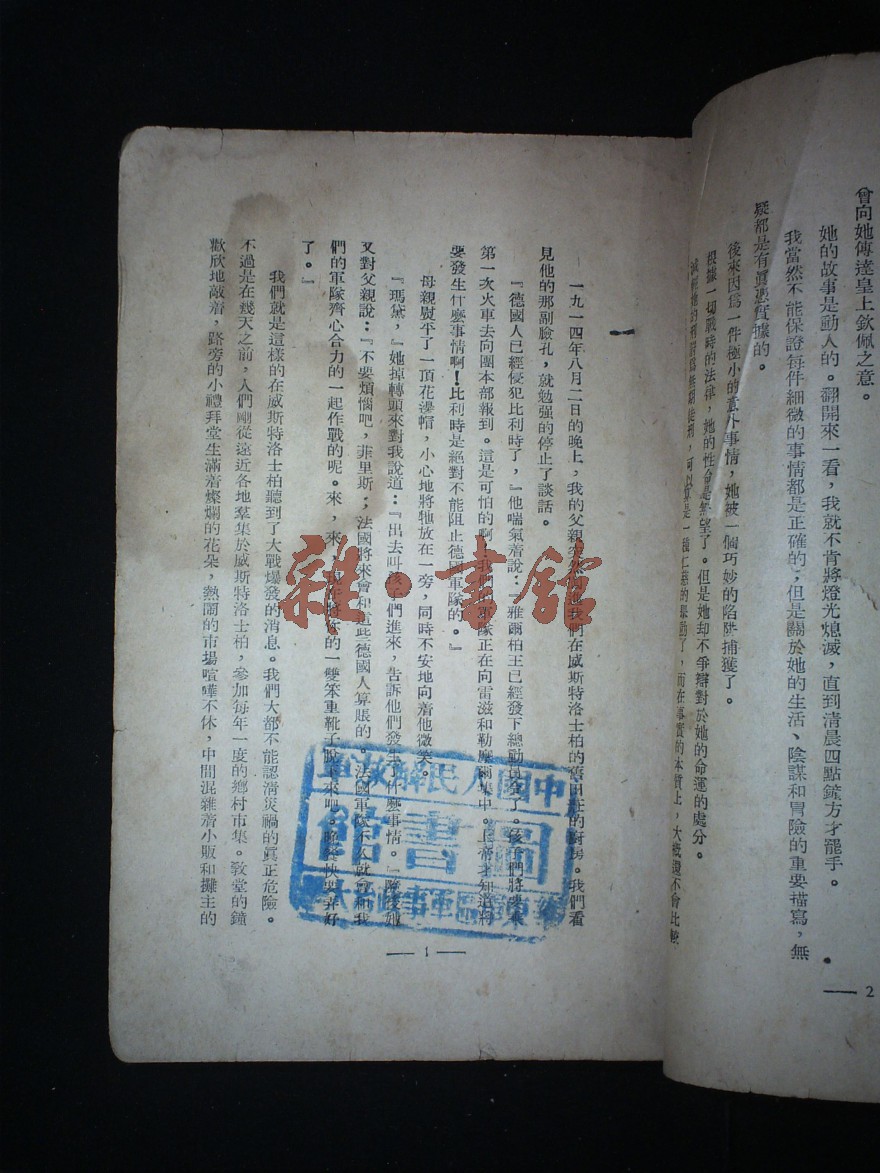 曾向她傳達皇上欽佩之意。
她的故事是動人的。翻開來一看，我就不肯將燈光熄滅，直到清晨四點鐘方才罷手。
我當然不能保證每件細微的事情都是正確的；但是關於她的生活、陰謀和冒險的重要描寫，無
疑都是有眞憑實據的。
後來因爲一件極小的意外事情，她被一個巧妙的陷阱捕獲了。
根據一切戰時的法律，她的性命是無望了。但是她却不爭辯對於她的命運的處分。
無期徒刑，可以算是一種仁慈的舉動了，而在事實的本質上，大概還不會比較
— 2
一
一九一四年八月二日的晚上，我的父親突然在威斯特洛士柏的舊田莊的厨房。我們看
見他的那副臉孔，就勉强的停止了談話。
『德國人已經侵犯比利時了，』他喘氣着說：『雅爾柏王已經發下總動員令了。孩子們將要乘
第一次火車去向團本部報到。這是可怕的啊！我們的軍隊正在向雷滋和勒麾爾集中。上帝才知道將
要發生什麽事情啊！比利時是絕對不能阻止德國軍隊的。』
母親熨平了一頂花邊帽，小心地將牠放在一旁，同時不安地向着他微笑。
『瑪黛，』她掉轉頭來對我說道：『出去叫孩子們進來，告訴他們發生了什麽事情。』隨後她
又對父親說：『不要煩惱吧，菲里斯；法國將來會和這些德國人算賬的。法國軍隊不久就會和我
們的軍隊齊心合力的一起作戰的呢。來，來，現在將你的一雙笨重靴子脫下來吧。晚餐快要弄好
了。』
我們就是這樣的在威斯特洛士柏聽到了大戰爆發的消息。我們大都不能認清災禍的眞正危險。
不過是在幾天之前，人們剛從遠近各地羣集於威斯特洛士柏，參加每年一度的鄉村市集。敎堂的鐘
歡欣地敲着，路旁的小禮拜堂生滿着燦爛的花朵，熱鬧的市場喧嘩不休，中間混雜着小販和攤主的
— 1 —
中國人民解放軍
圖書館
雜·書館